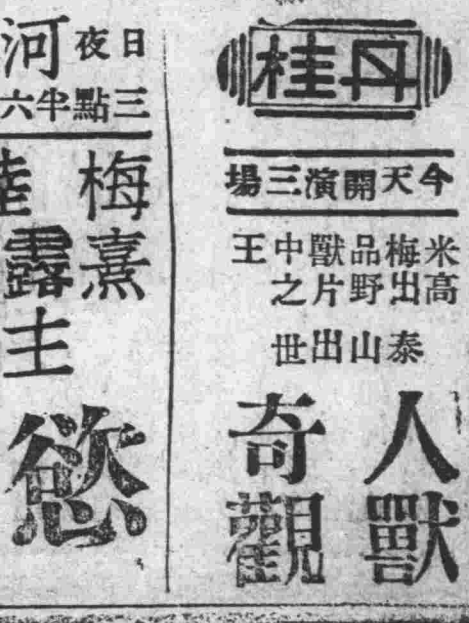 丹桂
今天開演三場
米高
梅出
品野
獸片
中之
王
泰山出世
人獸
奇觀
日夜河
三點半六
梅熹
露主
慾